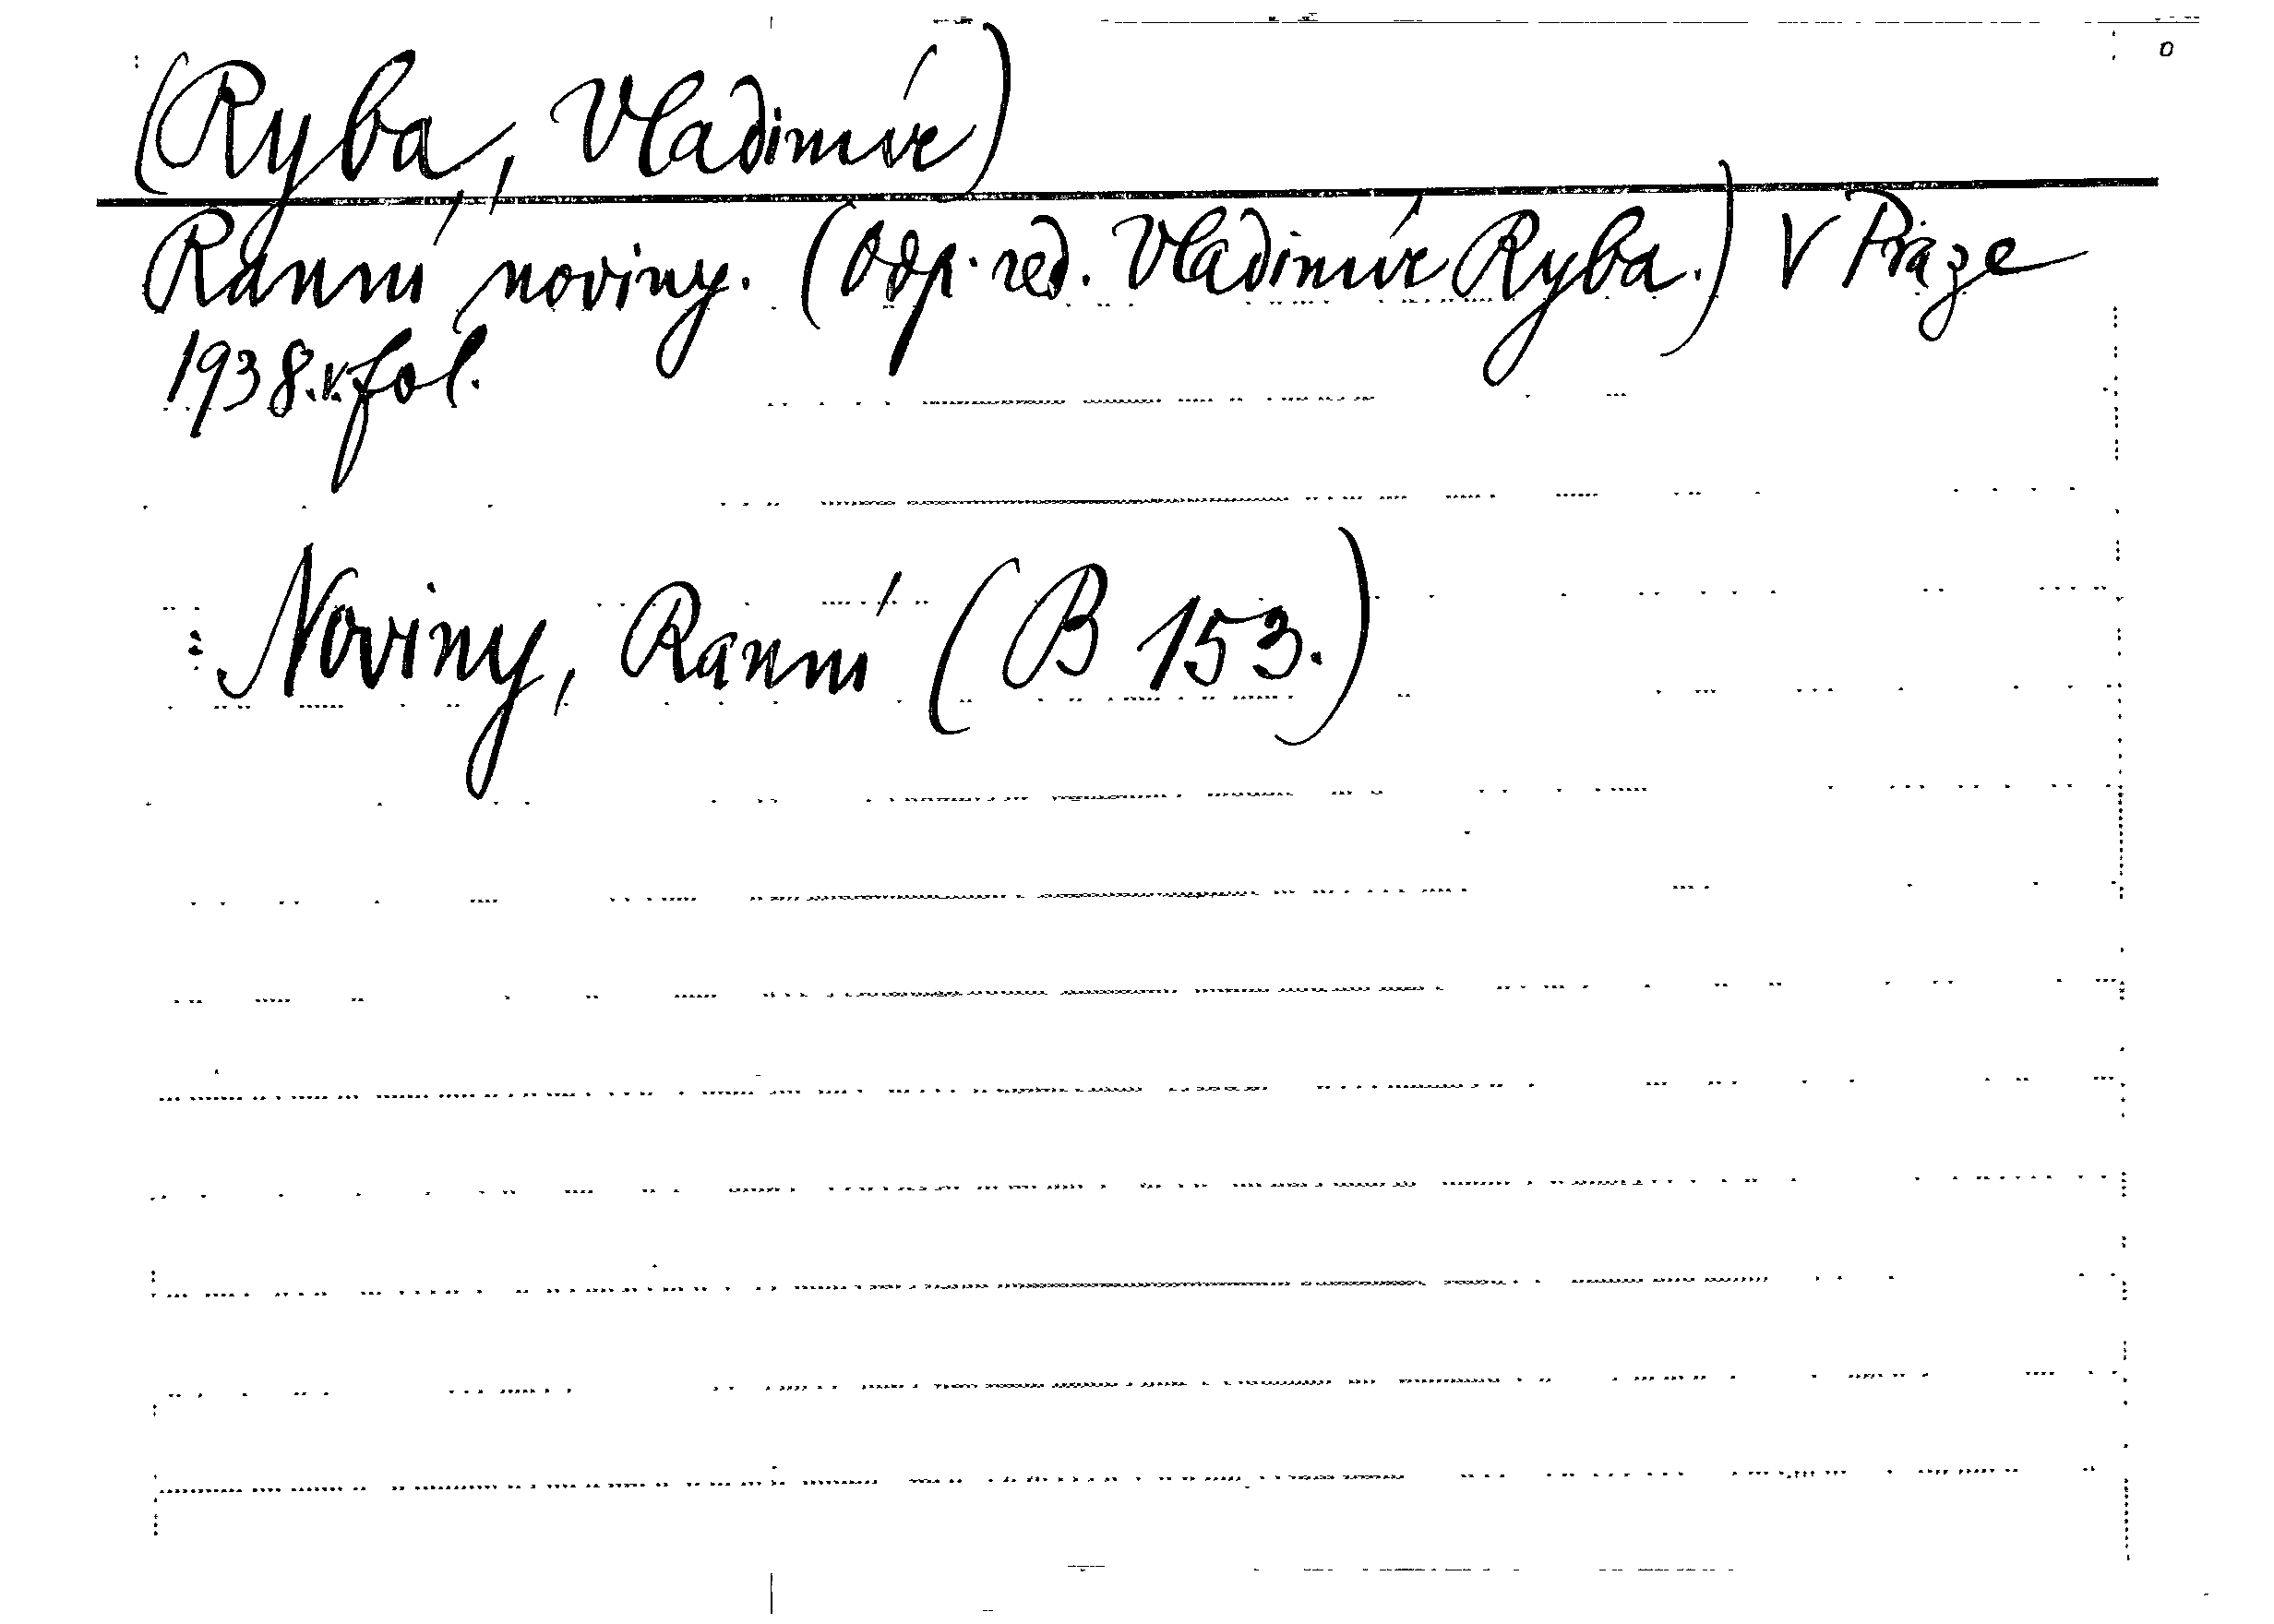 (Ryba, Vladimír)
Ranní noviny. (Odp. red. Vladimír Ryba.) V Praze
1938. v. fol.
Noviny, Ranní (B 153.)